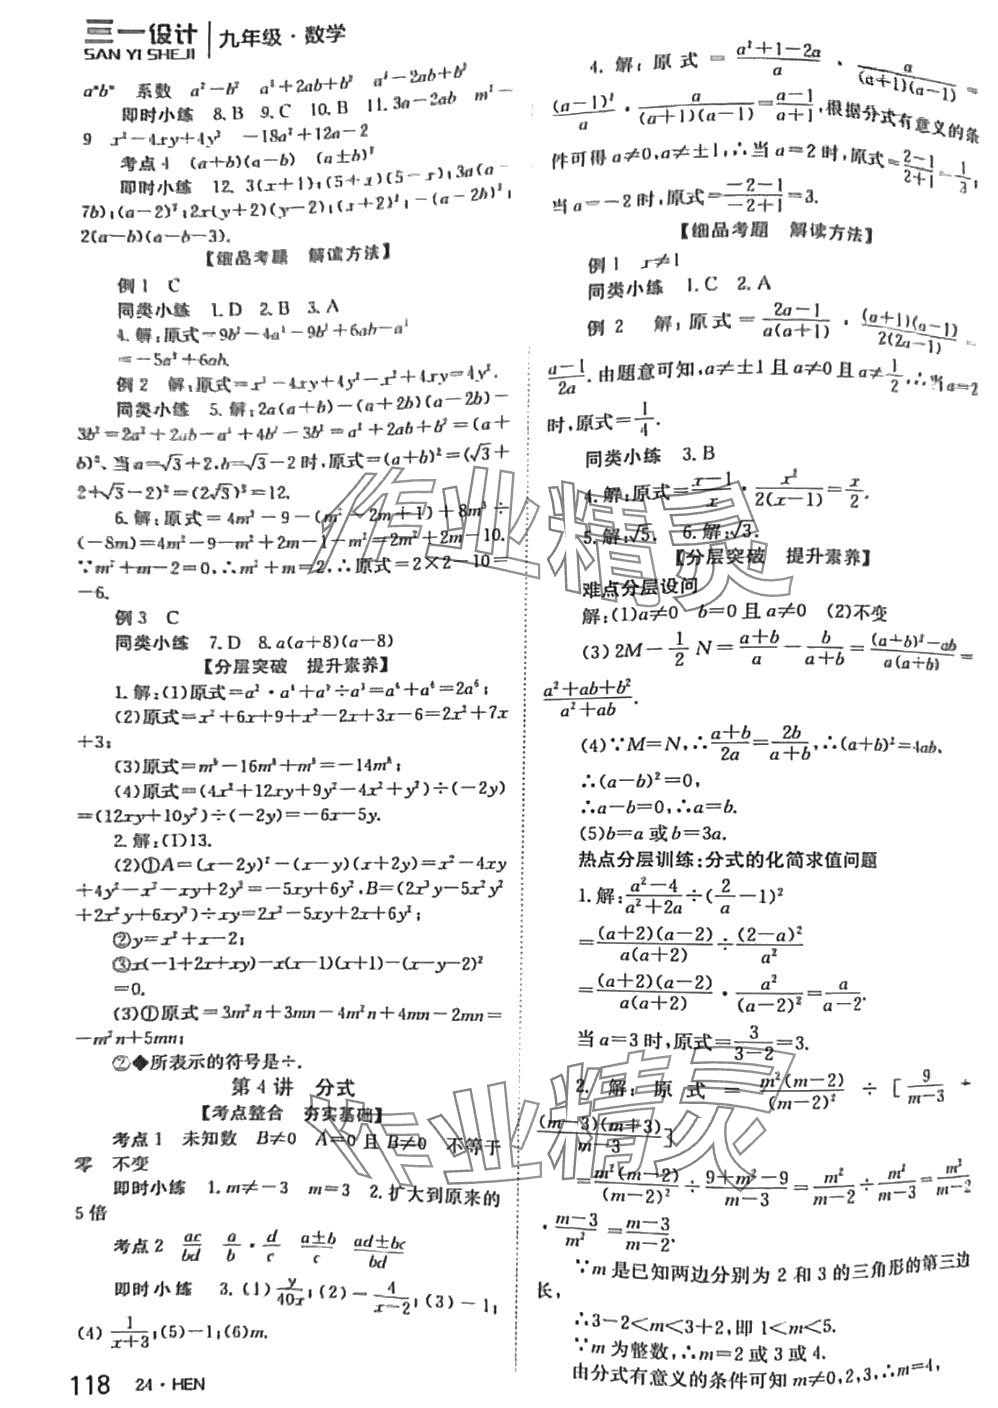 三一设计 九年级·数学
SAN YI SHEJI
aⁿbⁿ 系数 a²－b² a²＋2ab＋b² a²－2ab＋b²
即时小练 8.B 9.C 10.B 11.3a－2ab m²－
9 x²－4xy＋4y² －18a²＋12a－2
考点4 (a＋b)(a－b) (a±b)²
即时小练 12.3(x＋1);(5＋x)(5－x);3a(a－
7b);(a－2)²;2x(y＋2)(y－2);(x＋2)²;－(a－2b)²;
2(a－b)(a－b－3).
【细品考题 解读方法】
例1 C
同类小练 1.D 2.B 3.A
4.解:原式＝9b²－4a²－9b²＋6ab－a²
＝－5a²＋6ab.
例2 解:原式＝x²－4xy＋4y²－x²＋4xy＝4y².
同类小练 5.解:2a(a＋b)－(a＋2b)(a－2b)－
3b²＝2a²＋2ab－a²＋4b²－3b²＝a²＋2ab＋b²＝(a＋
b)²、当a＝√3＋2,b＝√3－2时,原式＝(a＋b)²＝(√3＋
2＋√3－2)²＝(2√3)²＝12.
6.解:原式＝4m²－9－(m²－2m＋1)＋8m³÷
(－8m)＝4m²－9－m²＋2m－1－m²＝2m²＋2m－10.
∵m²＋m－2＝0,∴m²＋m＝2,∴原式＝2×2－10＝
－6.
例3 C
同类小练 7.D 8.a(a＋8)(a－8)
【分层突破 提升素养】
1.解:(1)原式＝a²·a⁴＋a⁹÷a³＝a⁶＋a⁶＝2a⁶;
(2)原式＝x²＋6x＋9＋x²－2x＋3x－6＝2x²＋7x
＋3;
(3)原式＝m⁸－16m⁸＋m⁸＝－14m⁸;
(4)原式＝(4x²＋12xy＋9y²－4x²＋y²)÷(－2y)
＝(12xy＋10y²)÷(－2y)＝－6x－5y.
2.解:(1)13.
(2)①A＝(x－2y)²－(x－y)(x＋2y)＝x²－4xy
＋4y²－x²－xy＋2y²＝－5xy＋6y²,B＝(2x³y－2x²y²
＋2x²y＋6xy³)÷xy＝2x²－5xy＋6y²;
②y＝x²＋x－2;
③x(－1＋2x＋xy)－x(x－1)(x＋1)－(x－y－2)²
＝0.
(3)①原式＝3m²n＋3mn－4m²n＋4mn－2mn＝
－m²n＋5mn;
②◆所表示的符号是÷.
第4讲 分式
【考点整合 夯实基础】
考点1 未知数 B≠0 A＝0且B≠0 不等于
零 不变
即时小练 1.m≠－3 m＝3 2.扩大到原来的
5倍
考点2 ac/bd a/b·d/c (a±b)/c (ad±bc)/bd
即时小练 3.(1)y/40x;(2)－4/(x－2);(3)－1;
(4)1/(x＋3);(5)－1;(6)m.
118 24·HEN
4.解:原式＝(a²＋1－2a)/a·a/((a＋1)(a－1))＝
(a－1)²/a·a/((a＋1)(a－1))＝(a－1)/(a＋1),根据分式有意义的条
件可得a≠0,a≠±1,∴当a＝2时,原式＝(2－1)/(2＋1)＝1/3;
当a＝－2时,原式＝(－2－1)/(－2＋1)＝3.
【细品考题 解读方法】
例1 x≠1
同类小练 1.C 2.A
例2 解:原式＝(2a－1)/(a(a＋1))·((a＋1)(a－1))/(2(2a－1))＝
(a－1)/2a.由题意可知,a≠±1且a≠0且a≠1/2,∴当a＝2
时,原式＝1/4.
同类小练 3.B
4.解:原式＝(x－1)/x·x²/(2(x－1))＝x/2.
5.解:√5. 6.解:√3.
【分层突破 提升素养】
难点分层设问
解:(1)a≠0 b＝0且a≠0 (2)不变
(3)2M－1/2N＝(a＋b)/a－b/(a＋b)＝((a＋b)²－ab)/(a(a＋b))＝
(a²＋ab＋b²)/(a²＋ab).
(4)∵M＝N,∴(a＋b)/2a＝2b/(a＋b),∴(a＋b)²＝4ab,
∴(a－b)²＝0,
∴a－b＝0,∴a＝b.
(5)b＝a或b＝3a.
热点分层训练:分式的化简求值问题
1.解:(a²－4)/(a²＋2a)÷(2/a－1)²
＝((a＋2)(a－2))/(a(a＋2))÷(2－a)²/a²
＝((a＋2)(a－2))/(a(a＋2))·a²/(a－2)²＝a/(a－2).
当a＝3时,原式＝3/(3－2)＝3.
2.解:原式＝m²(m－2)/(m－2)²÷[9/(m－3)＋
((m－3)(m＋3))/(m－3)]
＝m²(m－2)/(m－2)²÷(9＋m²－9)/(m－3)＝m²/(m－2)÷m²/(m－3)＝m²/(m－2)
·(m－3)/m²＝(m－3)/(m－2).
∵m是已知两边分别为2和3的三角形的第三边
长,
∴3－2＜m＜3＋2,即1＜m＜5.
∵m为整数,∴m＝2或3或4.
由分式有意义的条件可知m≠0,2,3,∴m＝4,
作业精灵
作业精灵